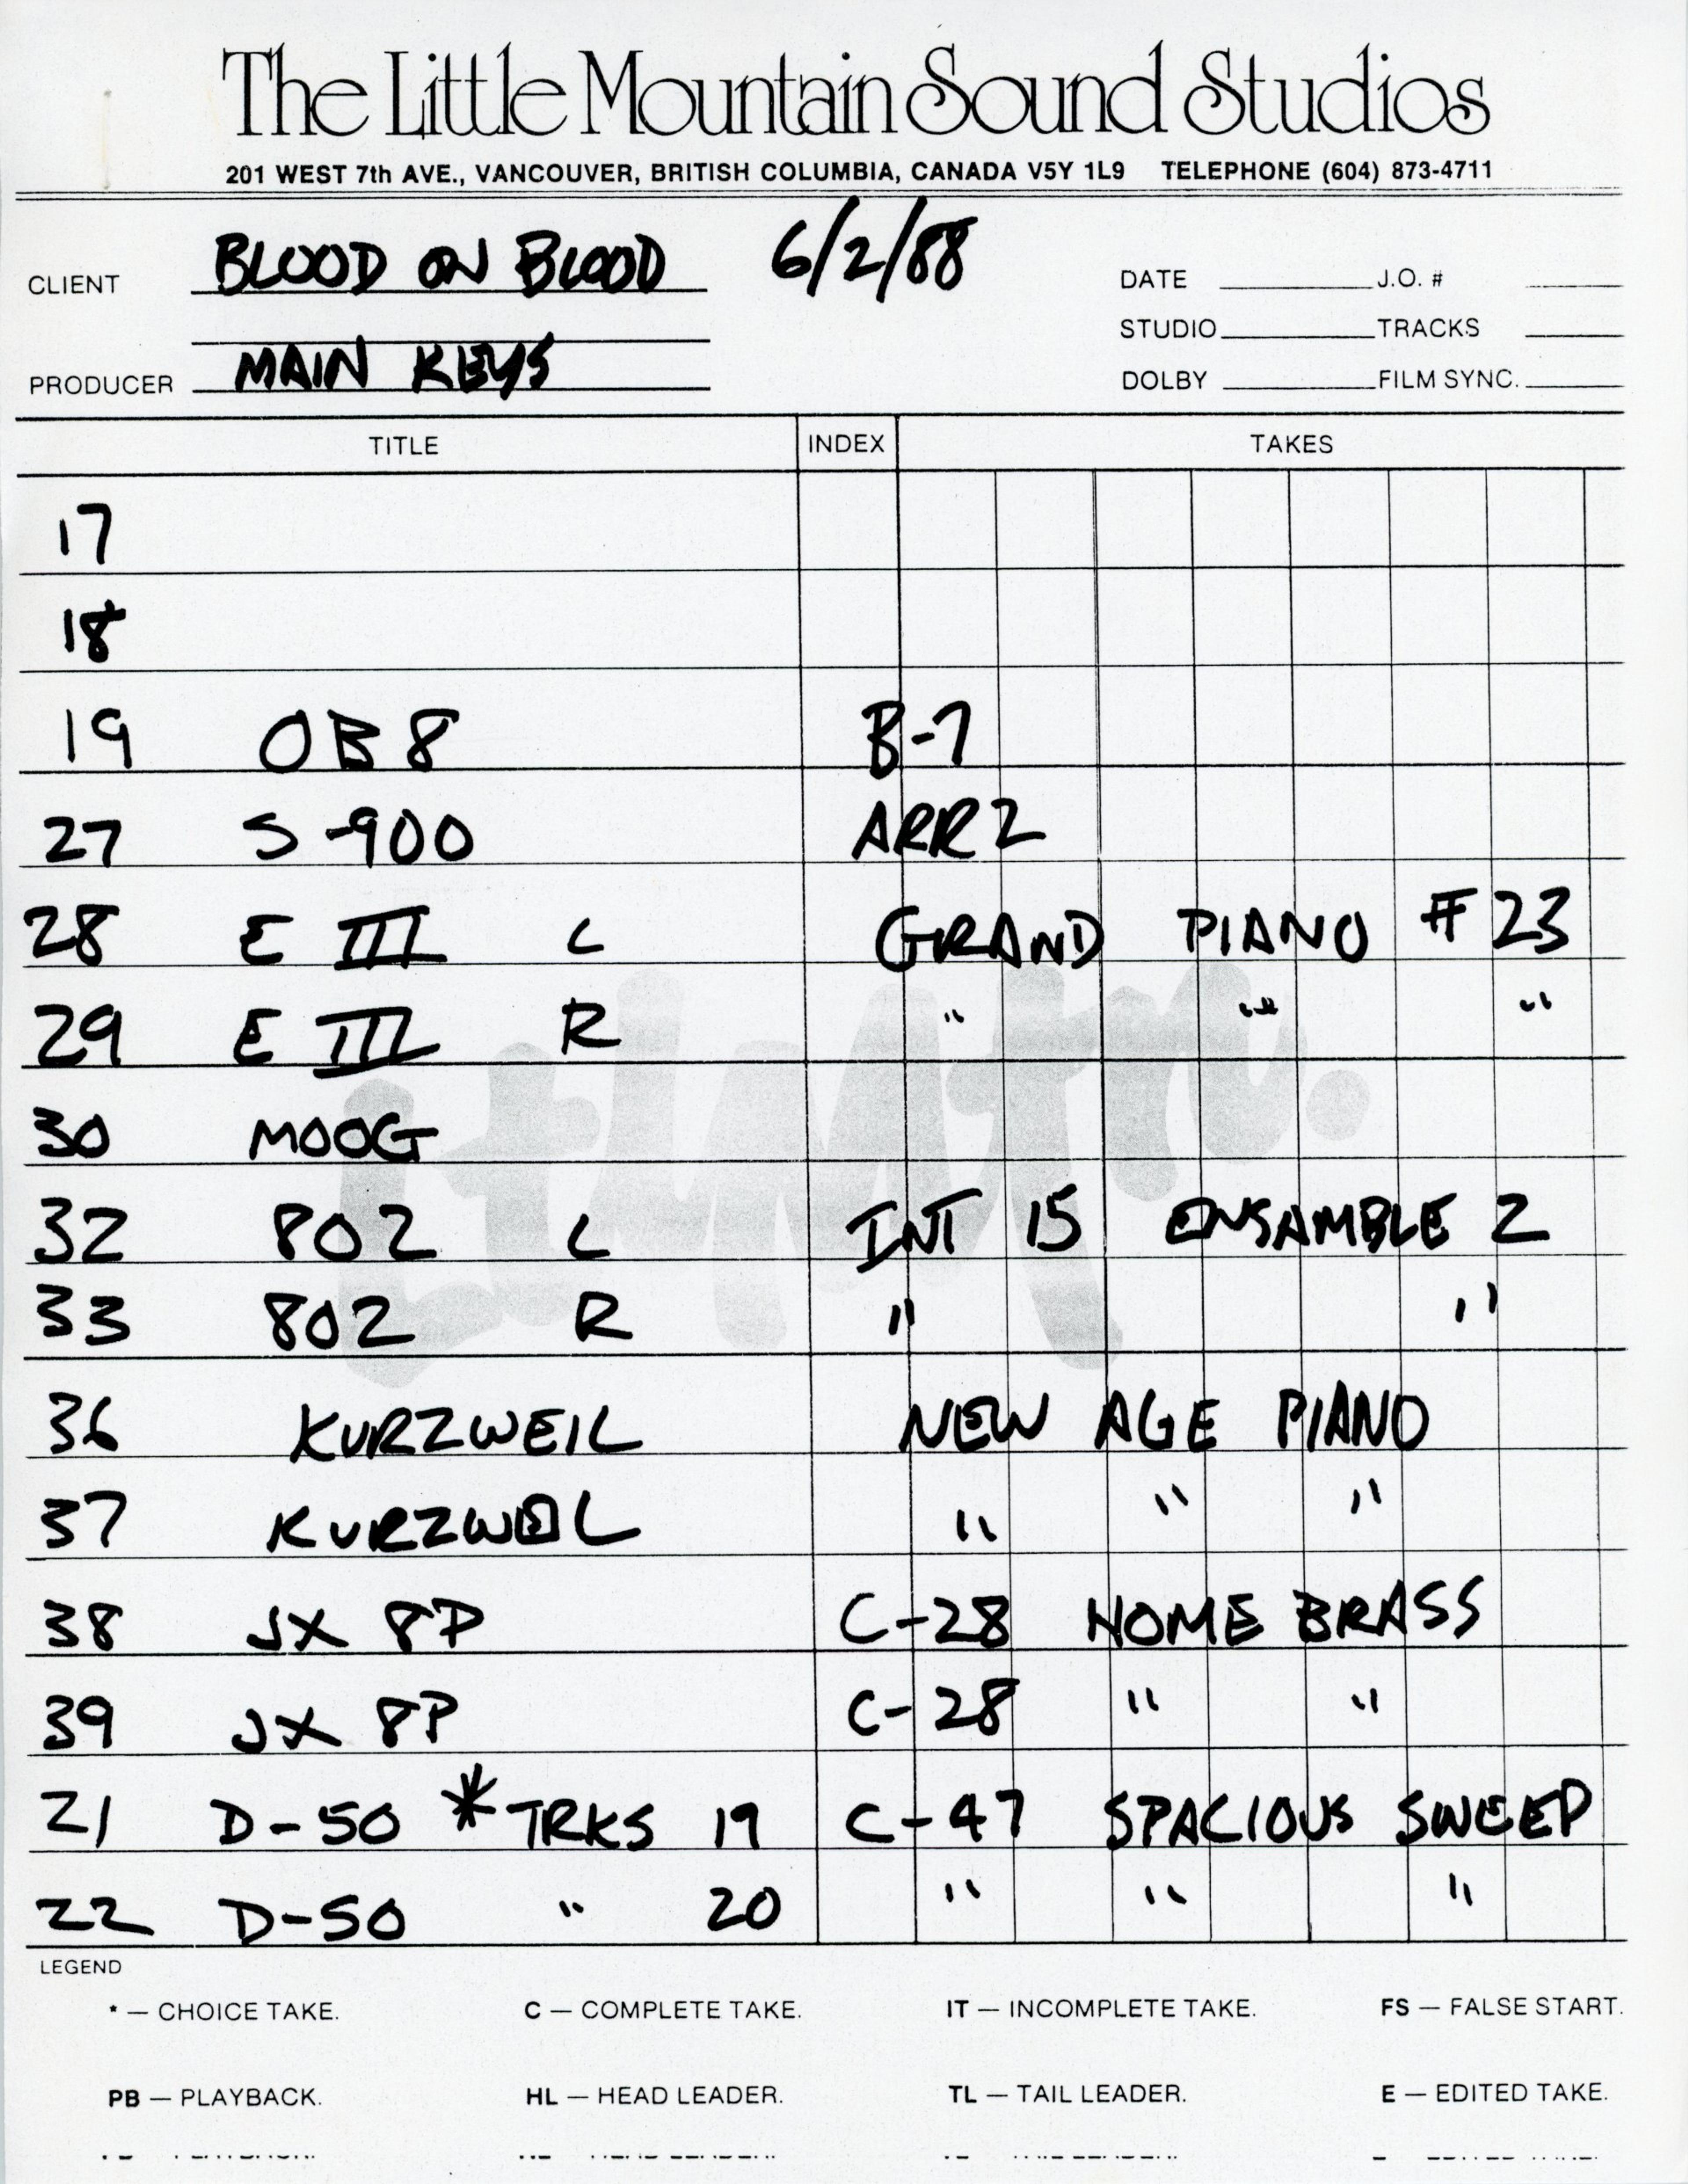 The Little Mountain Sound Studios
201 WEST 7th AVE., VANCOUVER, BRITISH COLUMBIA, CANADA V5Y 1L9 TELEPHONE (604) 873-4711
CLIENT BLOOD ON BLOOD 6/2/88 DATE J.O. #
STUDIO TRACKS
PRODUCER MAIN KEYS DOLBY FILM SYNC.
TITLE INDEX TAKES
17
18
19 OB8 B-7
27 S-900 ARR 2
28 E III L GRAND PIANO #23
29 E III R " " "
30 MOOG
32 802 L INT 15 ENSAMBLE 2
33 802 R " "
36 KURZWEIL NEW AGE PIANO
37 KURZWEIL " " "
38 JX 8P C-28 HOME BRASS
39 JX 8P C-28 " "
21 D-50 *TRKS 19 C-47 SPACIOUS SWEEP
22 D-50 " 20 " " "
LEGEND
* — CHOICE TAKE. C — COMPLETE TAKE. IT — INCOMPLETE TAKE. FS — FALSE START.
PB — PLAYBACK. HL — HEAD LEADER. TL — TAIL LEADER. E — EDITED TAKE.